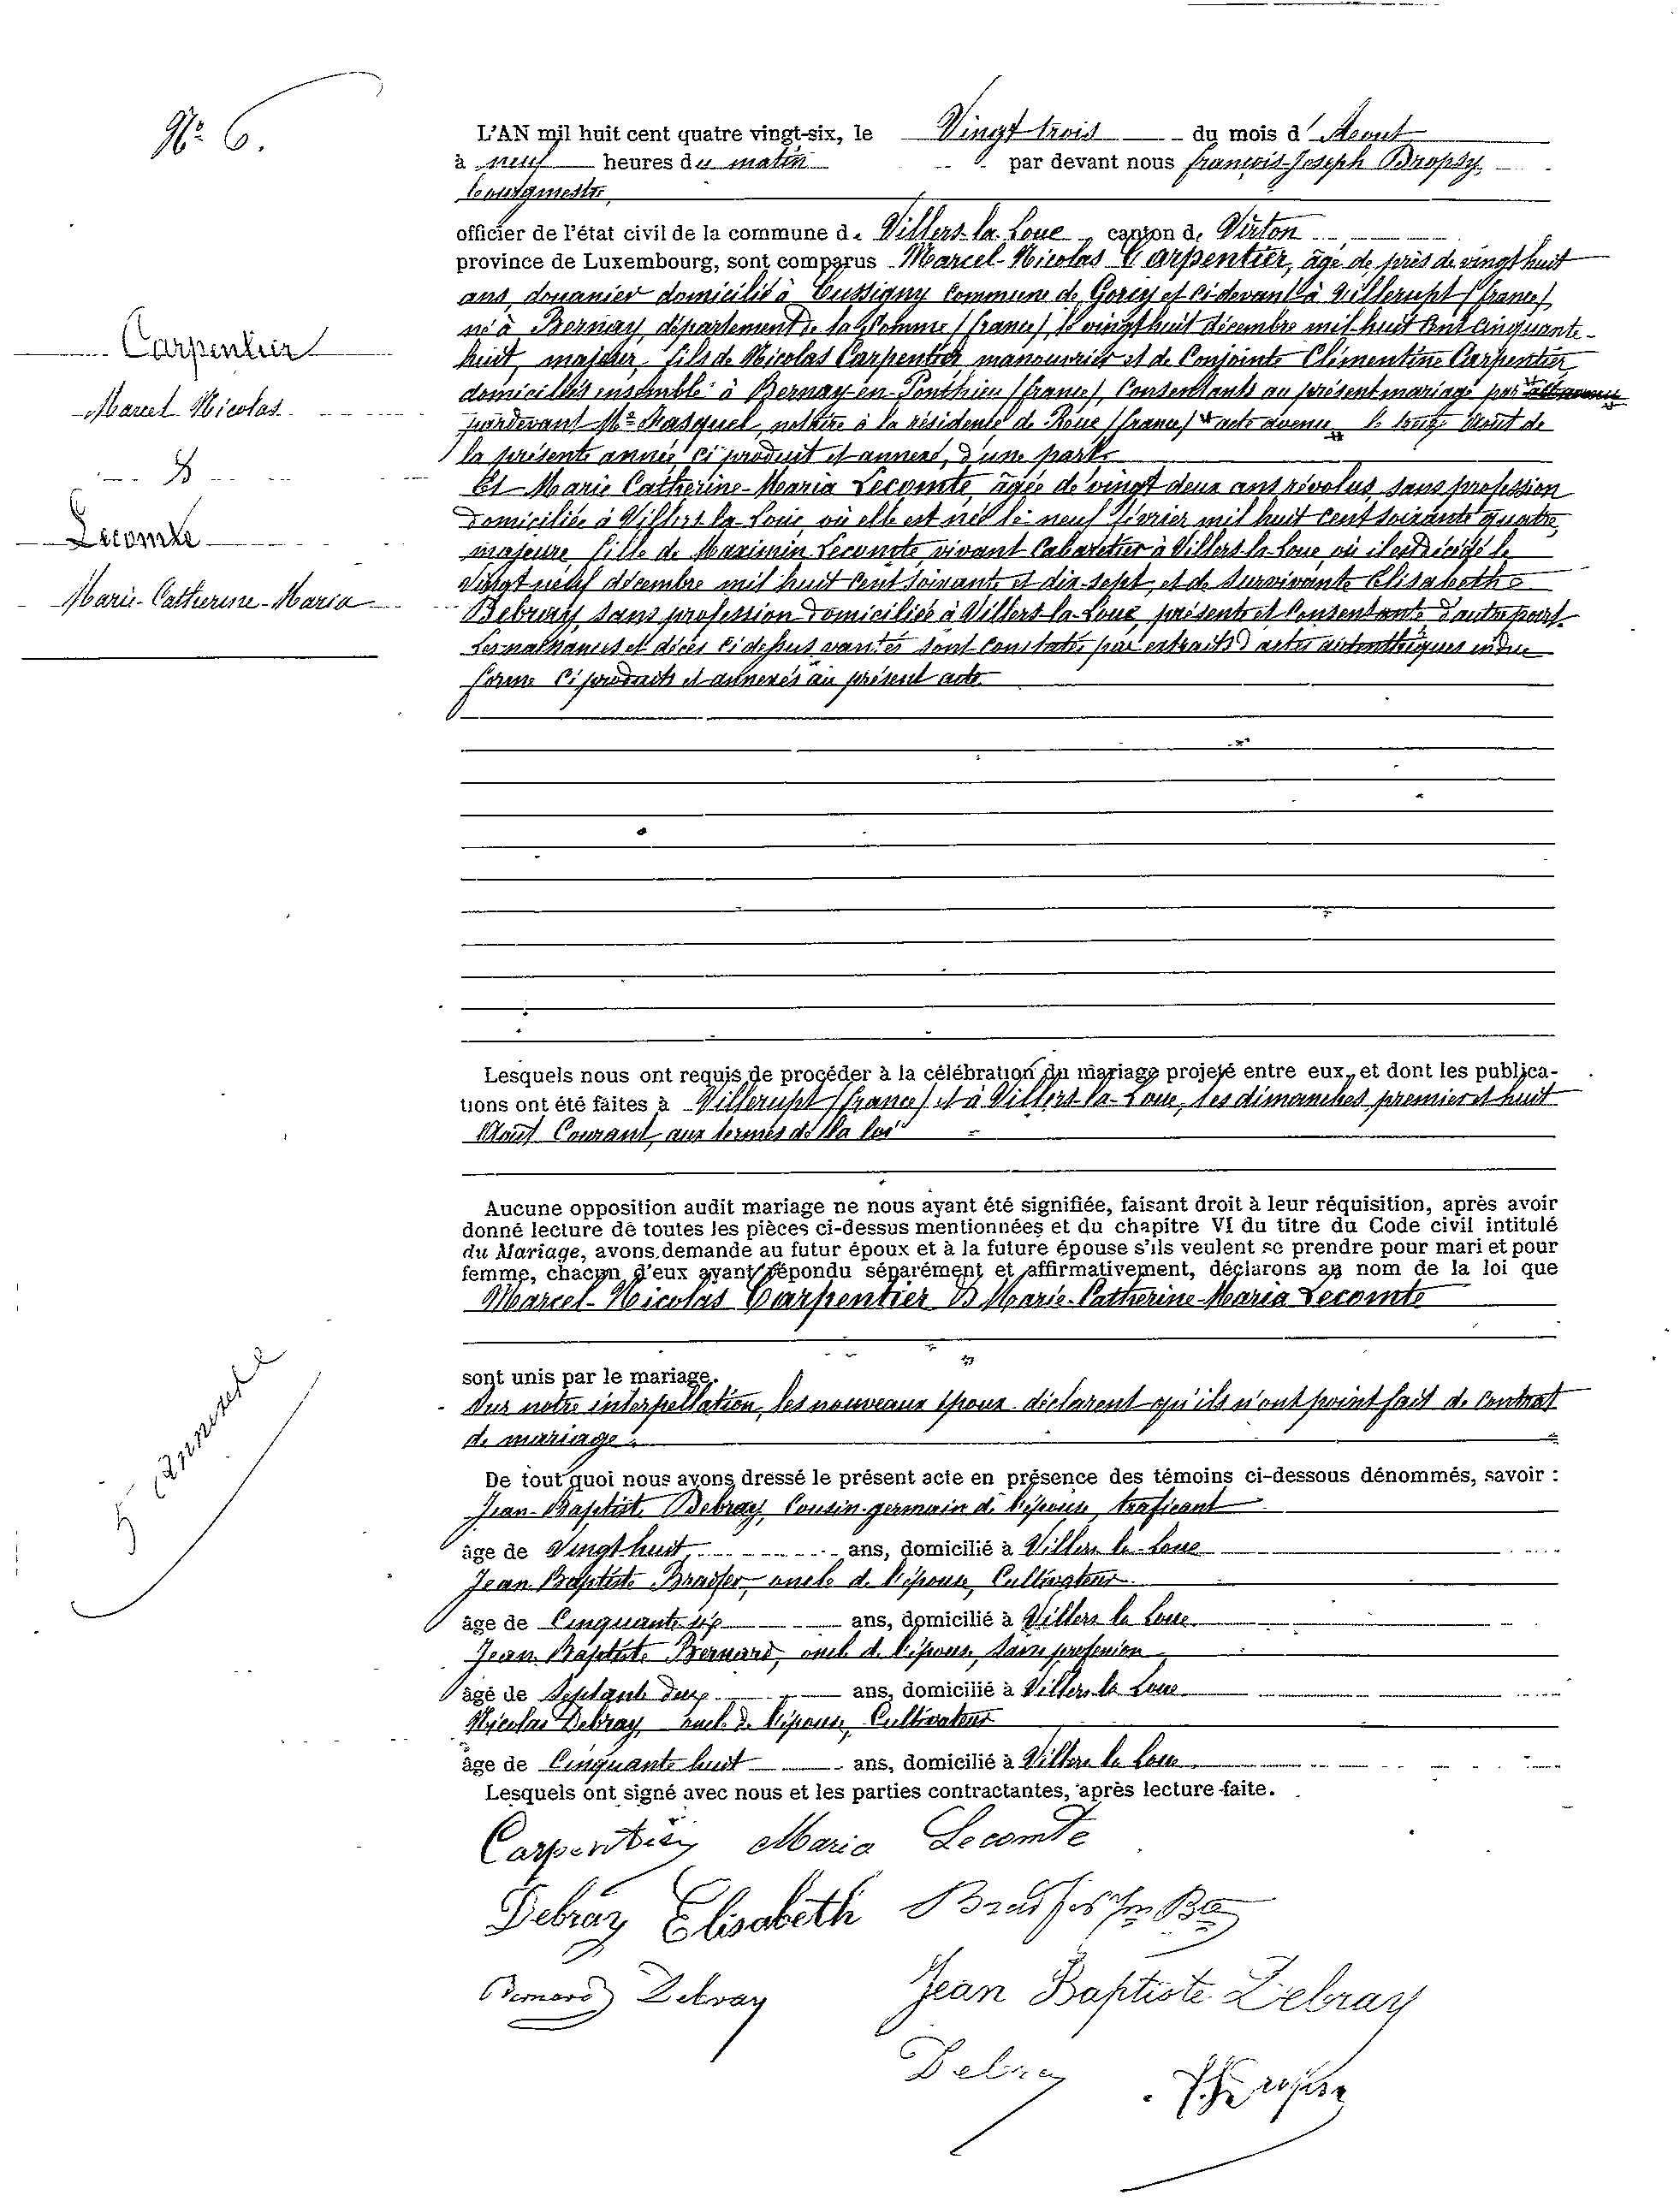 N° 6.
L'AN mil huit cent quatre vingt-six, le Vingt trois du mois d' Aout
à neuf heures du matin par devant nous françois-Joseph Bropsy,
bourgmestre,
officier de l'état civil de la commune de Villers-la-Loue, canton de Virton
province de Luxembourg, sont comparus Marcel-Nicolas Carpentier, âgé de près de vingt huit
ans, douanier domicilié à Cussigny Commune de Gorcy et ci-devant à Villerupt (france),
né à Bernay, département de la Somme (france), le vingt huit décembre mil huit cent cinquante-
huit, majeur, fils de Nicolas Carpentier, manouvrier et de Conjointe Clémentine Carpentier
domiciliés ensemble à Bernay-en-Ponthieu (france), Consentants au présent mariage par
pardevant Me Masquel, notaire à la résidence de Rue (france) acte avenu le treize Aout de
la présente année ci produit et annexé, d'une part.
Et Marie Catherine-Maria Lecomte, âgée de vingt deux ans révolus, sans profession
domiciliée à Villers-la-Loue, où elle est née le neuf février mil huit cent soixante quatre,
majeure, fille de Maximin Lecomte, vivant Cabaretier à Villers-la-Loue, où il est décédé le
vingt neuf décembre mil huit cent soixante et dix-sept, et de survivante Elisabeth
Debray, sans profession domiciliée à Villers-la-Loue, présente et Consentante, d'autre part.
Les naissances et décès ci dessus vantés sont constatés par extraits d'actes authentiques en due
forme ci produits et annexés au présent acte.
Carpentier
Marcel Nicolas
&
Lecomte
Marie-Catherine-Maria
Lesquels nous ont requis de procéder à la célébration du mariage projeté entre eux, et dont les publica-
tions ont été faites à Villerupt (france) et à Villers-la-Loue, les dimanches premier et huit
Aout Courant, aux termes de la loi
Aucune opposition audit mariage ne nous ayant été signifiée, faisant droit à leur réquisition, après avoir
donné lecture de toutes les pièces ci-dessus mentionnées et du chapitre VI du titre du Code civil intitulé
du Mariage, avons demande au futur époux et à la future épouse s'ils veulent se prendre pour mari et pour
femme, chacun d'eux ayant répondu séparément et affirmativement, déclarons au nom de la loi que
Marcel-Nicolas Carpentier & Marie-Catherine-Maria Lecomte
sont unis par le mariage.
Sur notre interpellation, les nouveaux époux déclarent qu'ils n'ont point fait de contrat
de mariage.
5 annexes
De tout quoi nous avons dressé le présent acte en présence des témoins ci-dessous dénommés, savoir :
Jean-Baptiste Debray, Cousin-germain de l'épouse, traficant
âge de Vingt huit ans, domicilié à Villers la-Loue
Jean Baptiste Brasfer, oncle de l'épouse, Cultivateur
âge de Cinquante six ans, domicilié à Villers la Loue
Jean Baptiste Bernard, oncle de l'épouse, sans profession
âgé de Septante deux ans, domicilié à Villers la Loue
Nicolas Debray, oncle de l'épouse, Cultivateur
âge de Cinquante huit ans, domicilié à Villers la Loue
Lesquels ont signé avec nous et les parties contractantes, après lecture faite.
Carpentier Maria Lecomte
Debray Elisabeth Brasfer Jn Bte
Bernard Debray Jean Baptiste Debray
Debray